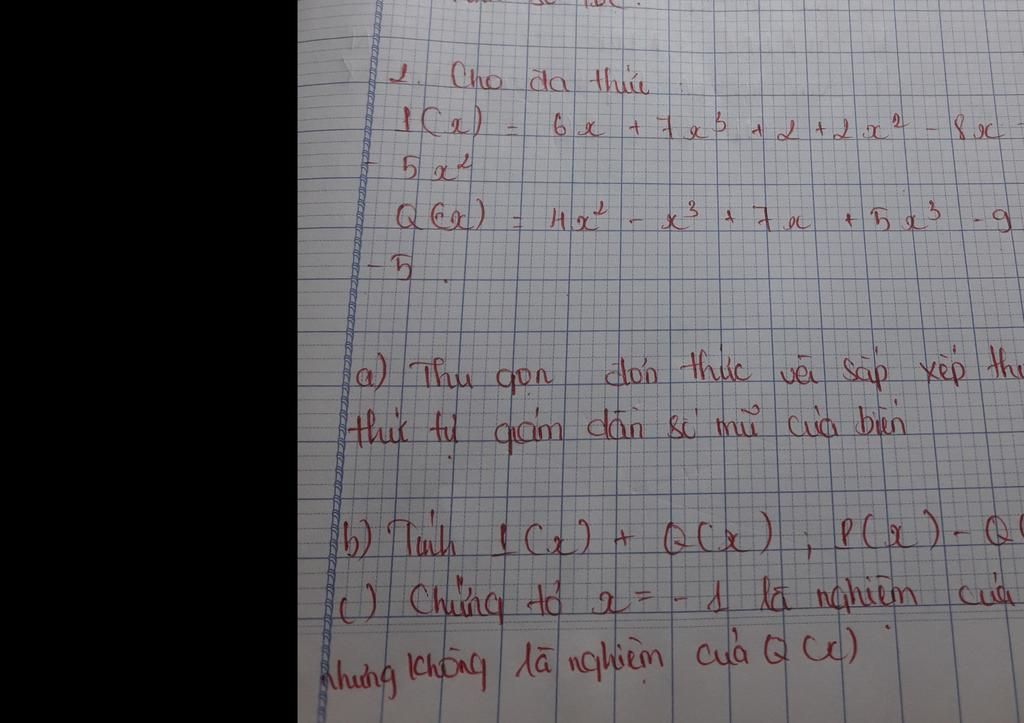 1. Cho đa thức :
P(x) = 6x + 7x³ + 2 + 2x² - 8x -
- 5x²
Q(x) = 4x² - x³ + 7x + 5x³ - 9
- 5 .
a) Thu gọn đơn thức và sắp xếp th
thứ tự giảm dần số mũ của biến
b) Tính P(x) + Q(x) ; P(x) - Q(
c) Chứng tỏ x = -1 là nghiệm của
nhưng không là nghiệm của Q(x)